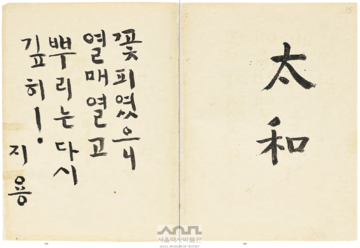 꽃 피였으니
열매 열고
뿌리는 다시
깊히!
지용
太和
서울역사박물관